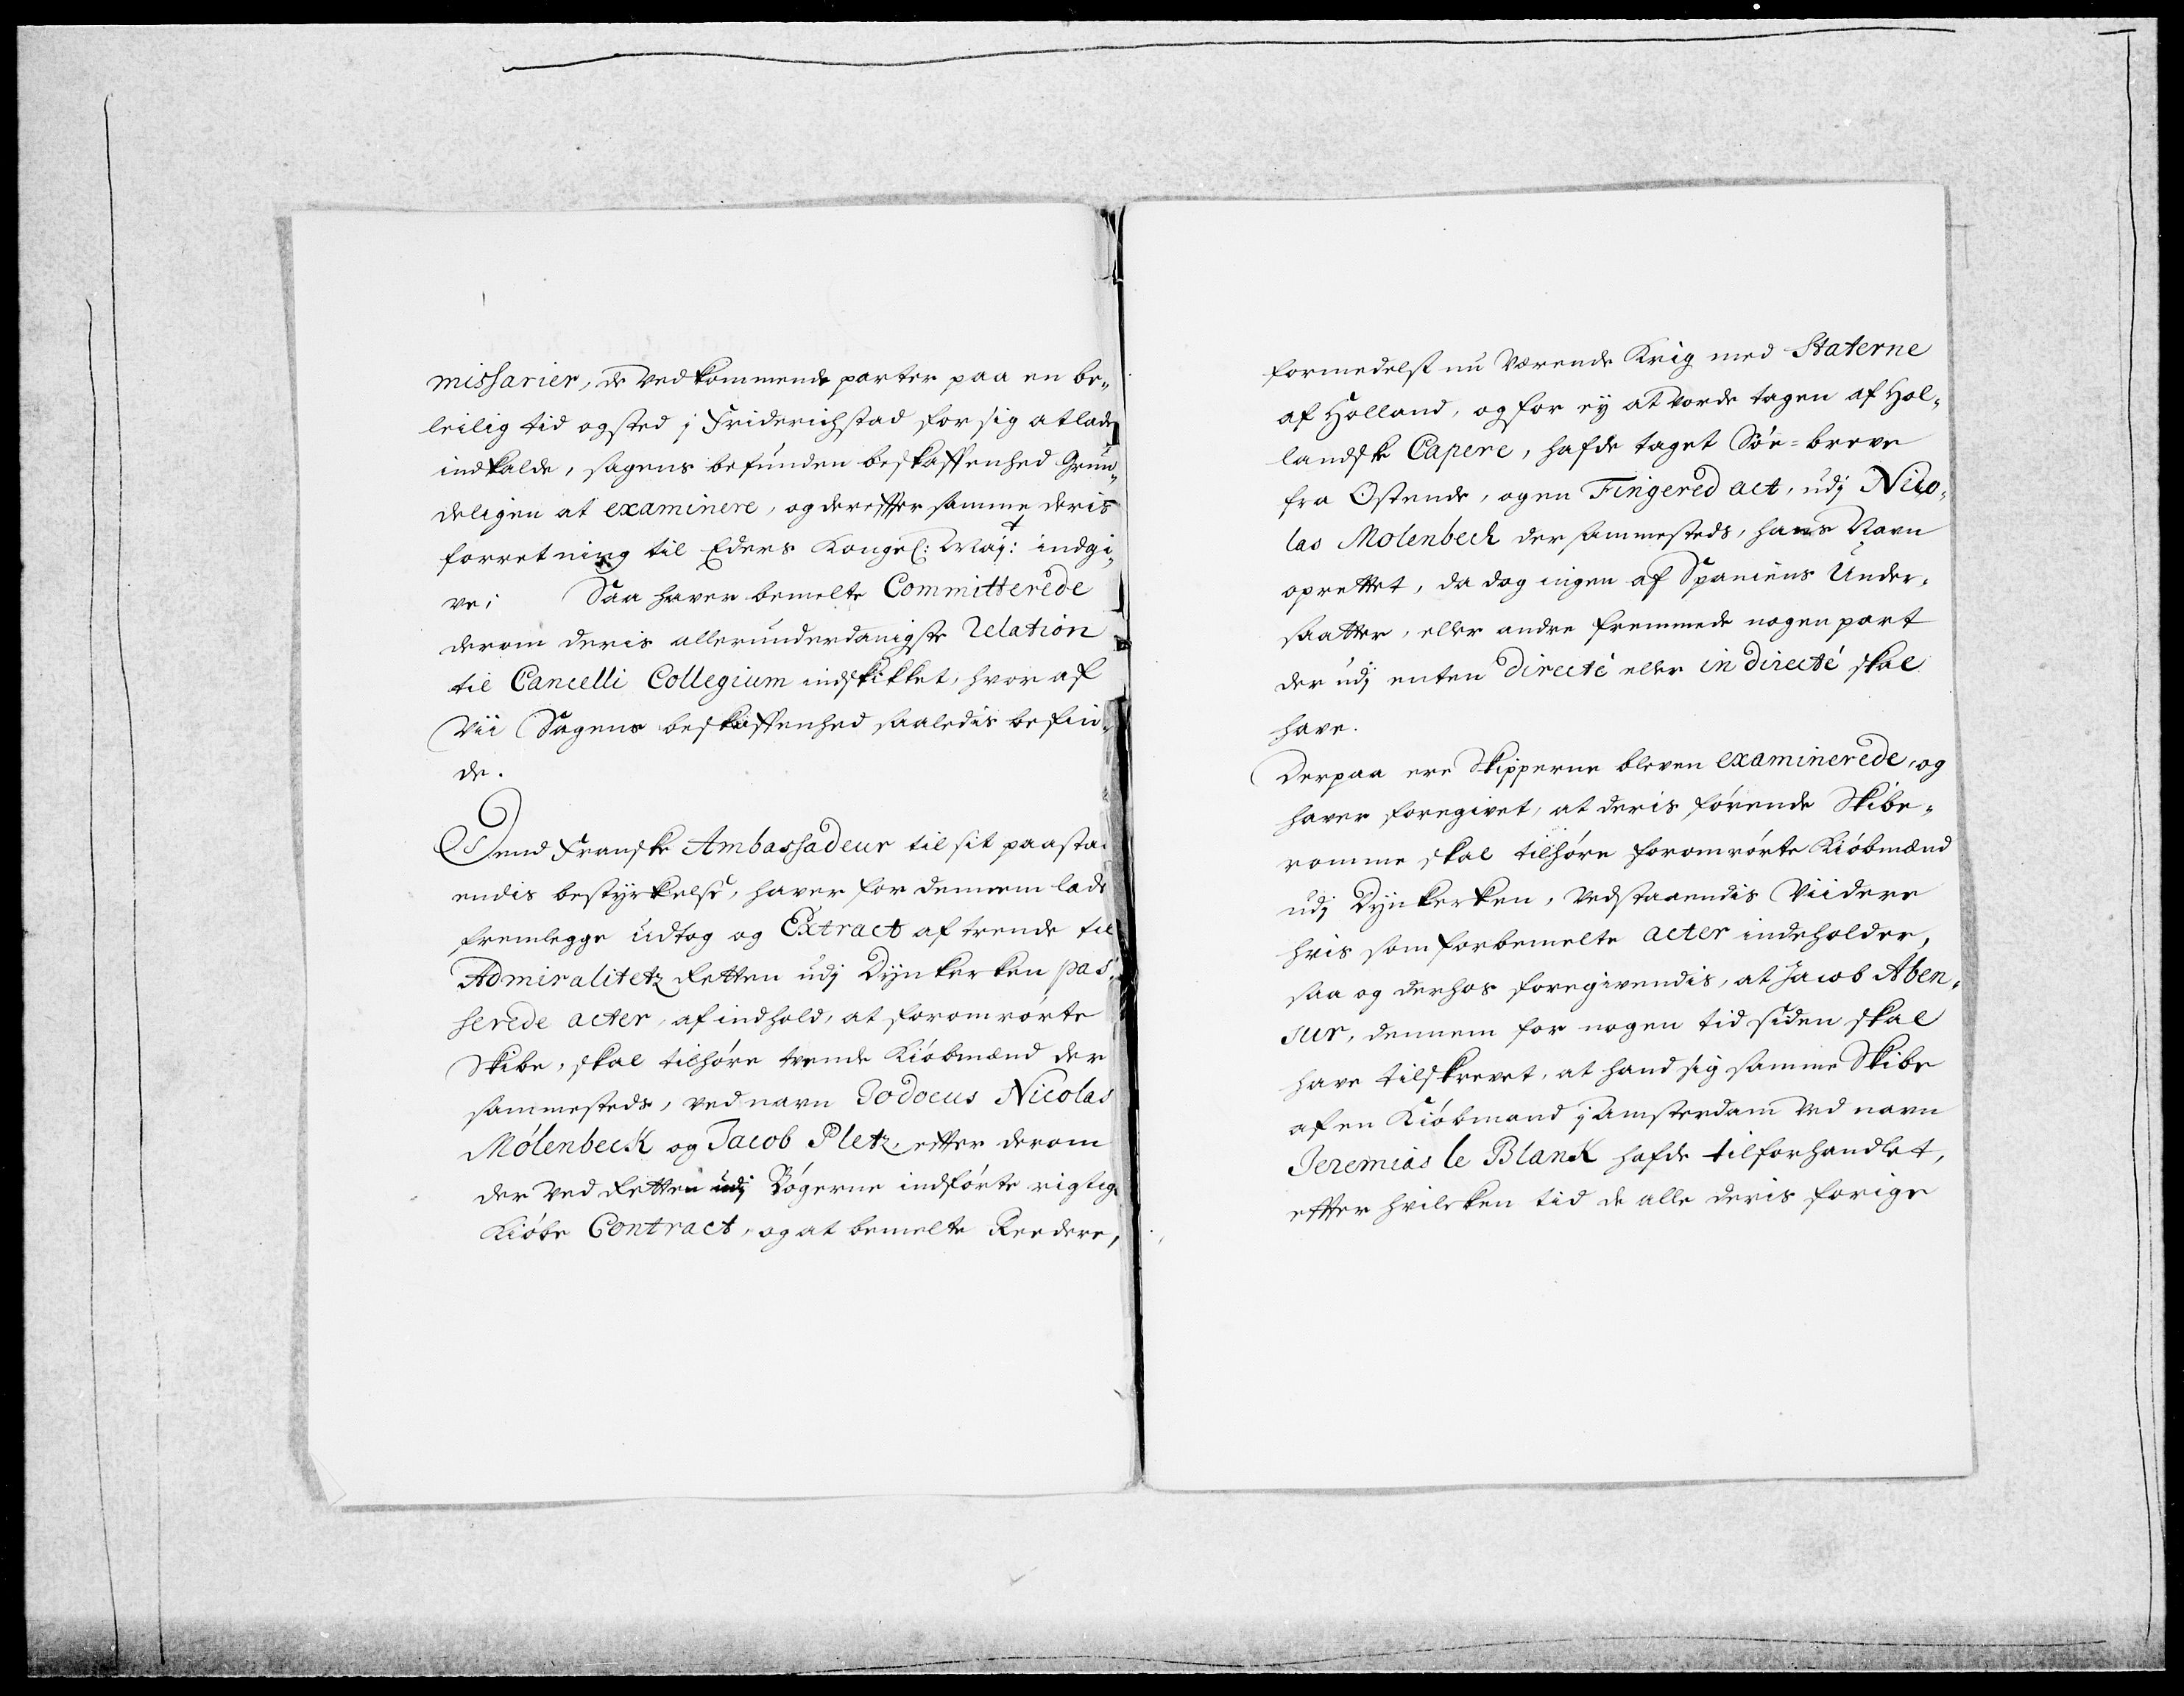 missarier, de vedkommende parter paa en be„
leilig tid og sted j Friderichstad for sig at lade
indkalde, sagens befunden beskaffenhed Grun„
deligen at examinere, og derefter samme deris
forretning til Eders Kongel: Maj:t indgi„
ve; Saa haver bemelte Committerede
derom deris allerunderdanigste Relation
til Cancelli Collegium indskikket, hvor af
Vii Sagens beskaffenhed saaledis befin„
de.
Dend Franske Ambassadeur til sit paasta„
endis bestyrkelse, haver for dennem lade
fremlegge udtog og Extract af trende til
Admiralitetz Retten udj Dynkerken pas„
serede acter, af indhold, at foromrörte
Skibe, skal tilhöre tvende Kiöbmænd der
sammesteds, ved navn Jodocus Nicolas
Mölenbeck og Jacob Pletz, efter derom
der ved Retten udj Bögerne indförte rigtige
Kiöbe Contract, og at bemelte Reedere,
formedelst nu Værende Krig med Staterne
af Holland, og for ey at vorde tagen af Hol„
landske Capere, hafde taget Söe=breve
fra Ostende, og en Fingered act, udj Nico„
las Molenbech der sammesteds, hans Navn
oprettet, da dog ingen af Spaniens Under„
saatter, eller andre fremmede nogen part
der udj enten directé eller in directé skal
have.
Derpaa ere Skipperne bleven examinerede, og
haver foregivet, at deris förende Skibe„
romme skal tilhöre foromrörte Kiöbmænd
udj Dynkerken, Vedstaaendis Viidere
hvis som forbemelte acter indeholder,
saa og derhos foregivendis, at Jacob Aben„
sur, dennem for nogen tid siden skal
have tilskrevet, at hand sig samme Skibe
af en Kiöbmand j Amsterdam ved navn
Jeremias le Blank hafde tilforhandlet,
effter hvilcken tid de alle deris forige